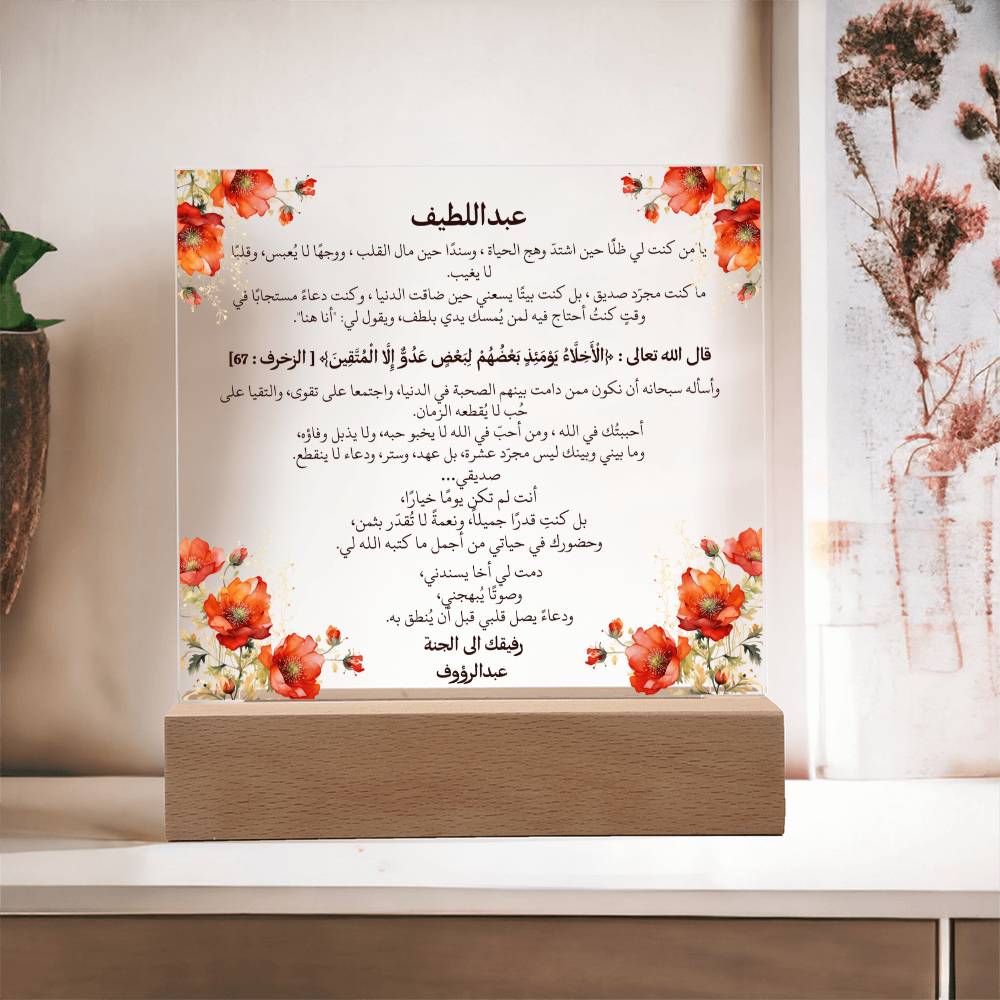 عبداللطيف
يا من كنت لي ظلًا حين اشتدّ وهج الحياة ، وسندًا حين مال القلب ، ووجهًا لا يُعبس، وقلبًا
لا يغيب.
ما كنت مجرّد صديق ، بل كنت بيتًا يسعني حين ضاقت الدنيا ، وكنت دعاءً مستجابًا في
وقتٍ كنتُ أحتاج فيه لمن يُمسك يدي بلطف، ويقول لي: "أنا هنا".
قال الله تعالى : ﴿الْأَخِلَّاءُ يَوْمَئِذٍ بَعْضُهُمْ لِبَعْضٍ عَدُوٌّ إِلَّا الْمُتَّقِينَ﴾ [ الزخرف : 67]
وأسأله سبحانه أن نكون ممن دامت بينهم الصحبة في الدنيا، واجتمعا على تقوى، والتقيا على
حُب لا يُقطعه الزمان.
أحببتُك في الله ، ومن أحبّ في الله لا يخبو حبه، ولا يذبل وفاؤه،
وما بيني وبينك ليس مجرّد عشرة، بل عهد، وستر، ودعاء لا ينقطع.
صديقي...
أنت لم تكن يومًا خيارًا،
بل كنتِ قدرًا جميلاً، ونعمةً لا تُقدّر بثمن،
وحضورك في حياتي من أجمل ما كتبه الله لي.
دمت لي أخا يسندني،
وصوتًا يُبهجني،
ودعاءً يصل قلبي قبل أن يُنطق به.
رفيقك الى الجنة
عبدالرؤوف